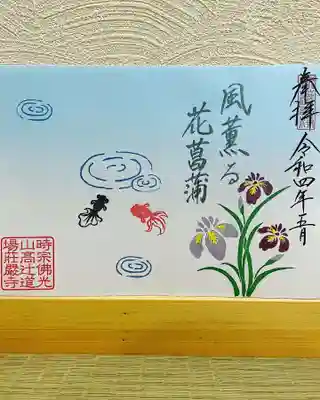 奉拝
令和四年五月
風薫る
花菖蒲
時宗佛光
山高辻道
場荘厳寺